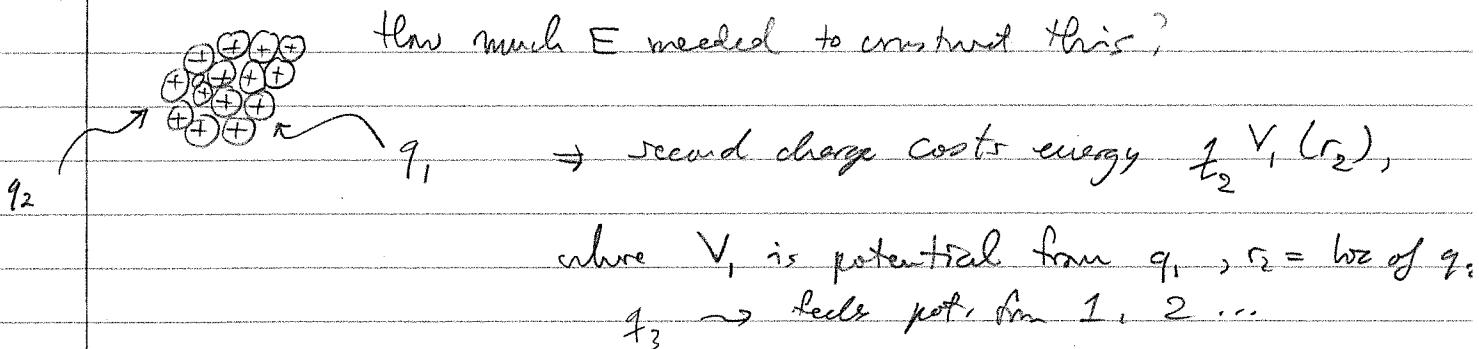 How much E needed to construct this?
q₁ ⇒ second charge costs energy q₂ V₁ (r₂),
q₂
where V₁ is potential from q₁, r₂ = loc of q₂
q₃ ⇝ feels pot. from 1, 2 ...